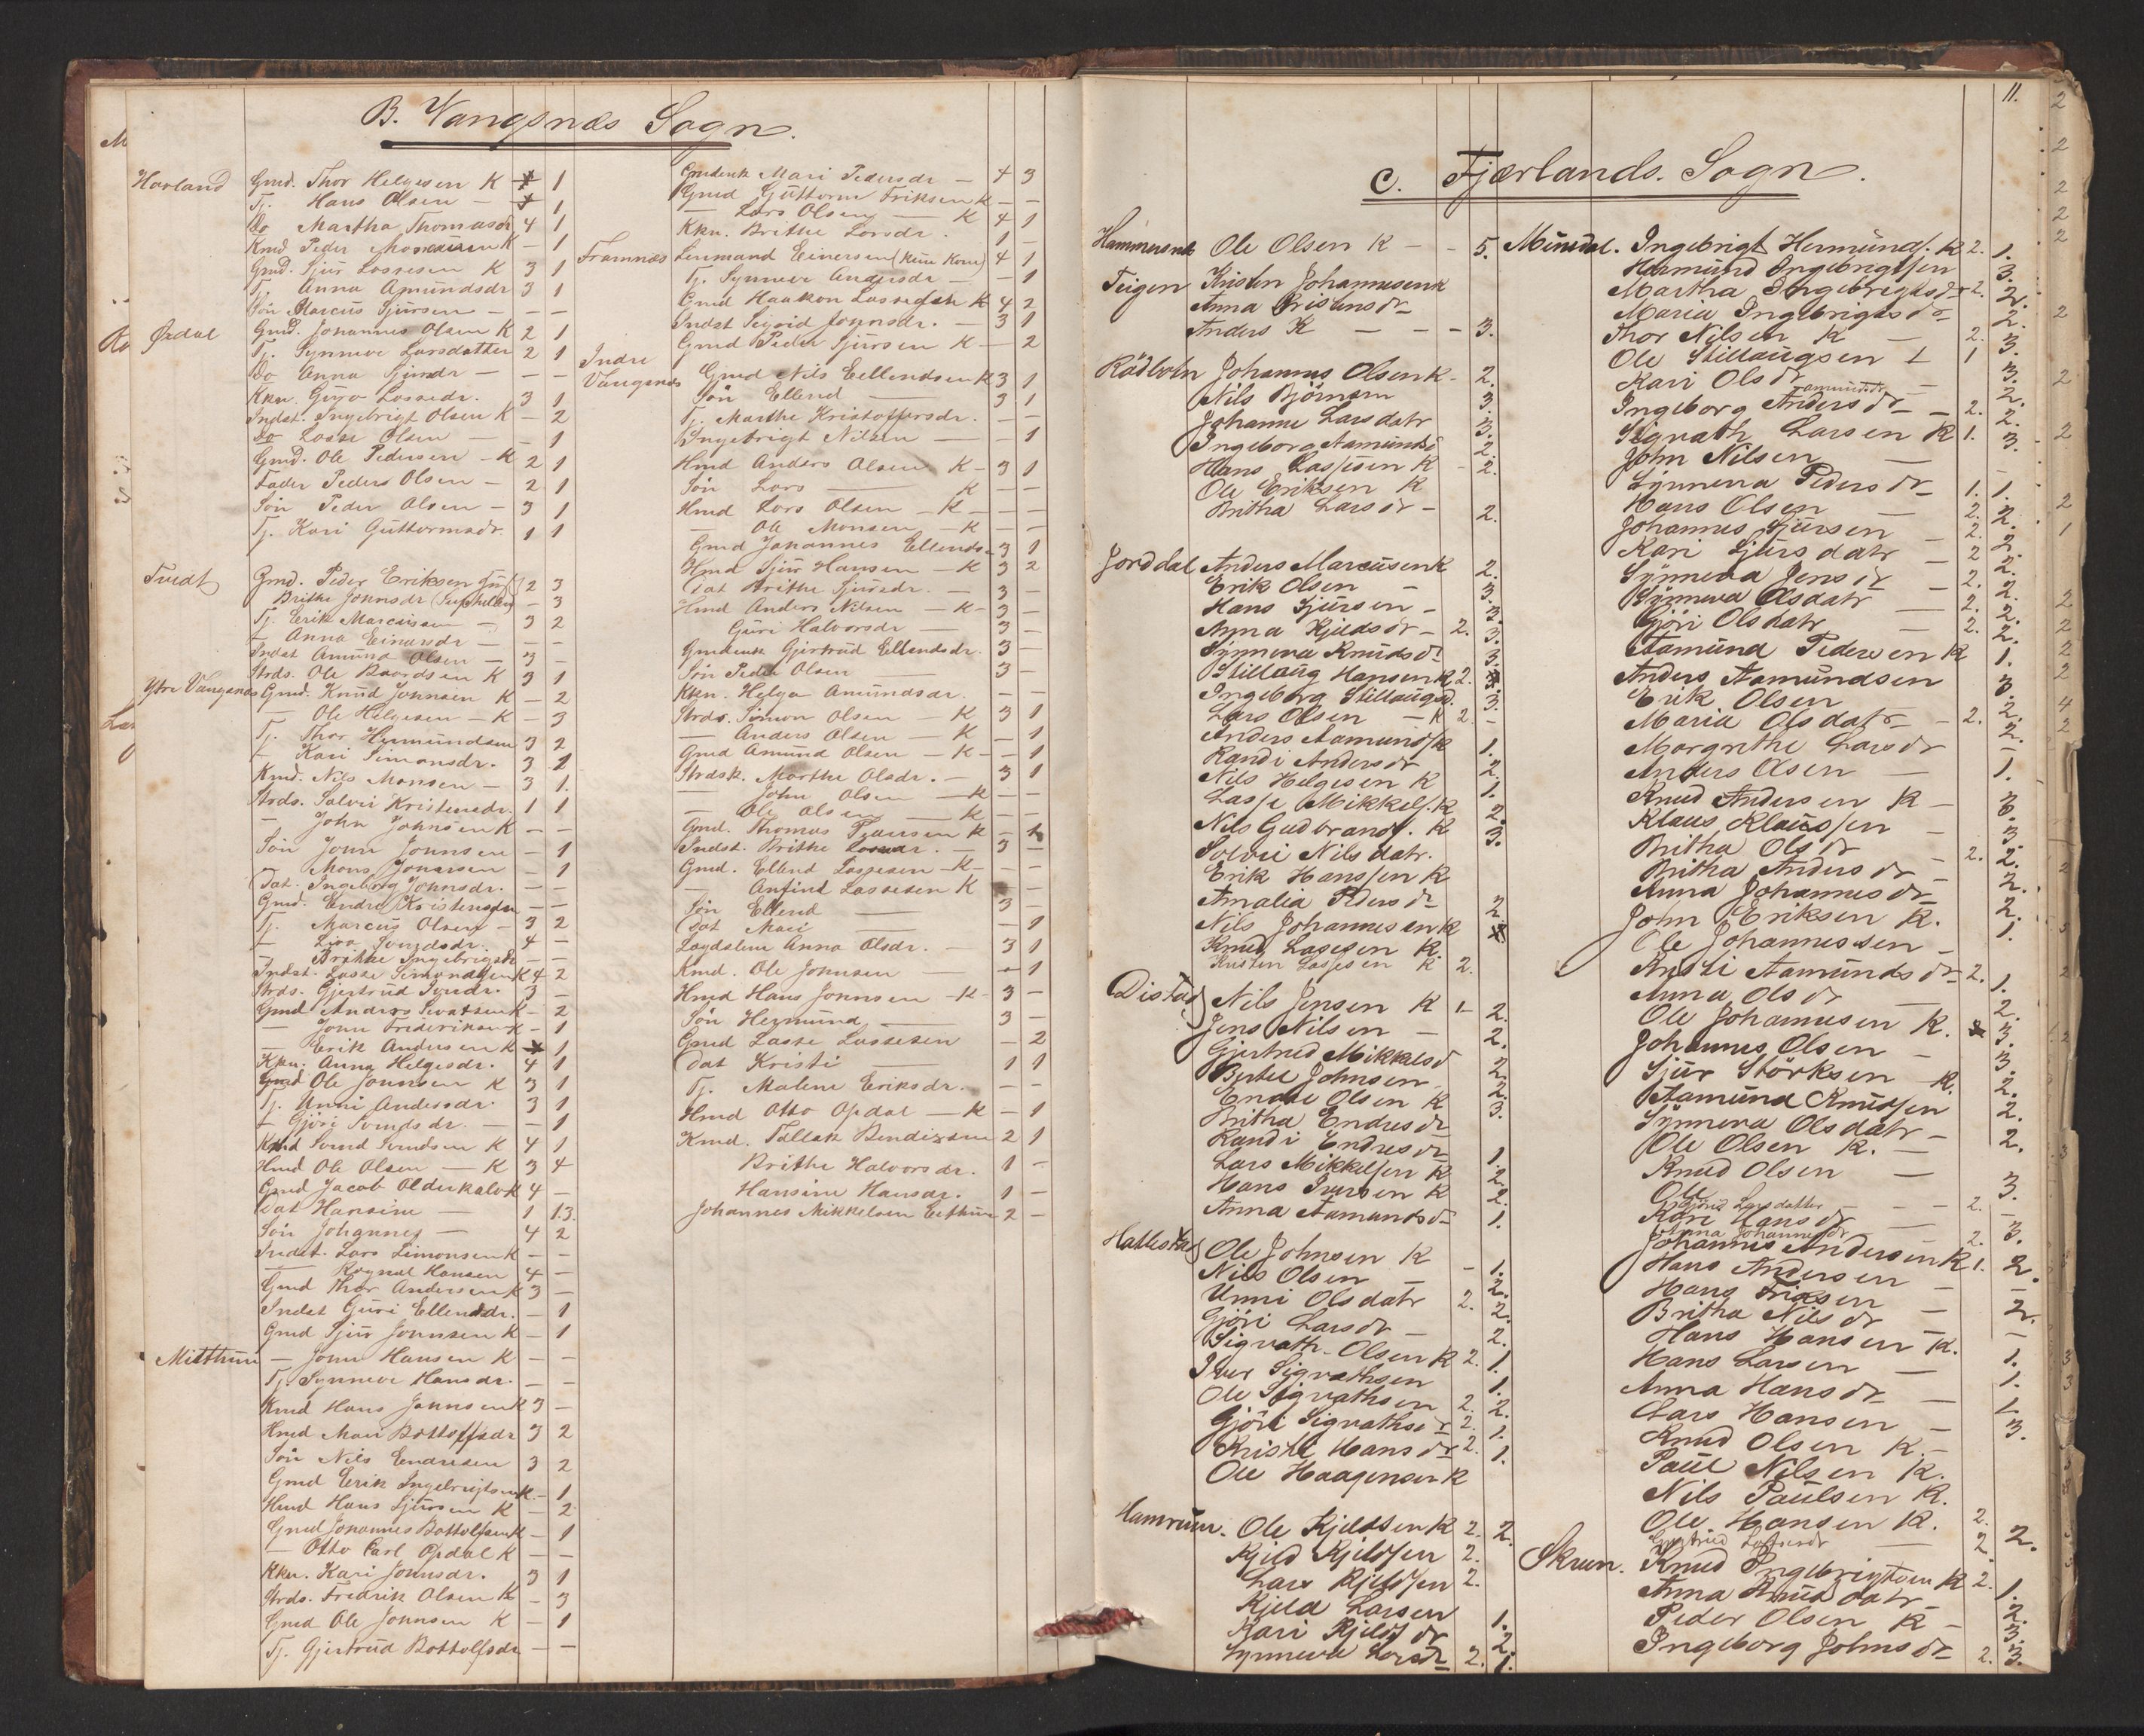 B. Vangsnæs Sogn.
Hovland Gmd. Thor Helgesen K 1
Tj. Hans Olsen — 1
Do Martha Thomasdr 4 1
Kmd Peder K — 1
Gmd. Sjur Lassesen K 3 1
Tj. Anna Amundsdr 3 1
Søn Marcus Sjursen — — —
Ørdal Gmd. Johannes Olsen K 2 1
Tj. Synneve Larsdatter 2 1
Do Anna Sjursdr — — —
Kkn. Guro Lassedr. 3 1
Indst. Ingebrigt Olsen K — 2
Do Lasse Olsen — — 1
Gmd. Ole Pedersen — K 2 1
Fader Peders Olsen — 2 1
Søn Peder Olsen — 3 1
Tj. Kari Guttormsdr 1 1
Tvedt Gmd. Peder Eriksen 2 3
Brithe Johnsdr — 3
Tj. Erik Marcussen — 3 2
— Anna Einarsdr — —
Indst Amund Olsen — 3 —
Strds. Ole Baardsen K 3 1
Ytre Vangsnæs Gmd. Knud Johnsen K — 2
— Ole Helgesen — K — 3
Tj. Thor Hermundsen 3 2
— Kari Simonsdr. 3 2
Kmd. Nils Monsen — 3 1.
Strds. Solvei Kristensdr. 1 1
— John Johnsen K — —
Søn John Johnsen — 1
Mons Johnsen — 1
Dat. Ingeborg Johnsdr. — —
Gmd. Endre Kristensen — —
Tj. Marcus Olsen — 3 2
— Liva 4 —
— Brithe Ingebrigtdr — —
Indst. Lasse Simonsen K 4 2
Strds. Gjertrud 3 —
Gmd Anders Sivatsen K — 2
— John Frederiksen K — 1
— Erik Andersen K 1
Kkn. Anna Helgesdr. 4 1
Gmd Ole Johnsen K 3 1
Tj. Unni Andersdr. 3 1
— Gjøri — 1
Kmd Svend Svendsen K 4 1
Hmd Ole Olsen — K 3 4
Gmd Jacob K 4 —
Dat Hansine — 1 13.
Søn Johannes — 4 2
Indst. Lars Simonsen K — —
— Hansen 4 —
Gmd Thor Andersen K 3 —
Indst Guri Ellendsdr. — 1
Gmd Sjur Johnsen K — 1
Midthun — John Hansen K — —
Tj. Synneve Hansdr. — —
Kmd Hans Johnsen K 3 —
Hmd Mari Bottolfsdr 3 2
Søn Nils Endresen 3 2
Gmd Erik Ingebrigtsen K — 1
Hmd Hans Sjursen K — 2
Gmd Johannes Bottolfsen K — 1
— Otto Carl Opdal K — —
Kkn. Kari Johnsdr. 3 1
Strds. Fredrik Olsen K — 3
Gmd Ole Johnsen K — 1
Tj. Gjertrud Bottolfsdr — —
Gmdenk Mari Pedersdr — 4 3
Gmd Guttorm Eriksen K — —
— Lars Olsen — K 4 1
Kkn. Brithe Larsdr. 1 —
Framnæs Lensmand Einersen 4 1
Tj. Synneve Andersdr — — 1
Gmd Haakon Lassesen K 4 2
Indst Sigrid Johnsdr. — 3 1
Gmd Peder Sjursen K — 2
Indre
Vangsnæs Gmd Nils Ellendsen K 3 1
Søn Ellend — 3 1
Tj. Marthe Kristoffersdr. — —
Ingebrigt Nilsen — — 1
Hmd Anders Olsen K — 3 1
Søn Lars — K — —
Hmd Lars Olsen — K — —
— Ole Monsen — K — —
Gmd Johannes Ellends. 3 1
Hmd Sjur Hansen — K 3 2
Dat Brithe Sjursdr. — 3 —
Hmd Anders Nilsen — K — —
Guri Halvorsdr — 3 —
Gmdenk Gjertrud Ellendsdr. 3 —
Søn Peder Olsen — 3 —
Kkn. Helga Amundsdr. — —
Strds. Simon Olsen — K 3 1
— Anders Olsen — K — 1
Gmd Amund Olsen — K — 1
Strdsk. Marthe Olsdr. — 3 1
— John Olsen — K — —
— Ole Olsen — K — —
Gmd. Thomas Pedersen K —
Indst. Brithe — 3 —
Gmd. Ellend Lassesen — K — —
— Anfind Lassesen K —
Søn Ellend — 3 —
Dat Mari — — 1
Lægdslem Anna Olsdr. — 3 1
Kmd. Ole Johnsen — 1
Hmd Hans Johnsen — K — 3 —
Søn Hermund — 3 —
Gmd Lasse Lassesen — 2
Dat Kristi — 1 1
Tj. Malene Eriksdr. — —
Hmd Otto Opdal — K — 1
Kmd. Tallak Bendixsen 2 1
Brithe Halvorsdr. 1 —
Hansine Hansdr. 1 —
Johannes Mikkelsen 2 —
11.
C. Fjærlands. Sogn.
Hammersnæs Ole Olsen K — — 5.
Teigen Kristen Johannesen K
Anna Kristensdr —
Anders K — — — 3.
Rödlvoln Johannes Olsen K — 2.
Nils Björnsen 3.
Johanne Larsdatr 3.
Ingeborg Aamundsd 2.
Hans Lassesen K — 2.
Ole Eriksen K
Britha Larsdr — 2.
Jorddal Anders Marcusen K 2.
Erik Olsen — 3.
Hans Sjursen — 3.
Anna Kjeldsdr — 2. 3.
Synneva Knudsdr 3.
Stillaug Hansen K 2.
Ingeborg Stillaugsd. 3.
Lars Olsen — K 2. —
Anders Aamunds. K 1.
Randi Andersdr 2.
Nils Helgesen K 1.
Lasse Mikkels. K 2.
Nils Gudbrands. K 3.
Solvei Nilsdatr.
Erik Hanssen K
Amalia Pedersdr 2.
Nils Johannesen K
Knud Lassesen K.
Kristen Lassesen K 2.
Distad Nils Jensen K 1 2.
Jens Nilsen — 2.
Gjertrud Mikkelsd 2.
Bertel Johnsen 2.
Endre Olsen K 3.
Britha Endresdr
Randi Endresdr 1.
Lars Mikkelsen K 2.
Hans Iversen K 2.
Anna Aamundsdr 1.
Hatlestad Ole Johnsen K — 1.
Nils Olsen 2.
Unni Olsdatr 2. 2.
Gjöri Larsdr — 2.
Sigvath Olsen K 2. 1.
Iver Sigvathsen 1.
Ole Sigvathsen 2. 2.
Gjöri Sigvathsdr 2. 1.
Kristi Hansdr 2. 1.
Ole Haagensen K
Hamrum. Ole Kjeldsen K 2. 2.
Kjeld Kjeldsen 2.
Lars Kjeldsen 2.
Kjeld Larsen 1.
Kari Kjeldsdr 2.
Synneva Larsdr 2. 1.
Mundal. Ingebrigt Hermunds. K 2. 1.
Hermund Ingebrigtsen 3.
Martha Ingebrigtsdr 2. 2.
Maria Ingebrigtsdr 2.
Thor Nilsen K — 2. 3.
Ole Stillaugsen 1
Kari Olsdr — 2.
Aamundsdr
Ingeborg Andersdr — 2. 2.
Sigvath Larsen K 1. 3.
John Nilsen — —
Synneva Pedersdr 1. 1.
Hans Olsen — 2. 2.
Johannes Sjursen — 2. 2.
Kari Sjursdatr — 2 2.
Synneva Jensdr — 2. 2.
Synneva Olsdatr — 2. 2.
Gjöri Olsdatr — 2. 2.
Aamund Pedersen K 1.
Anders Aamundsen 3.
Erik Olsen 2.
Maria Olsdatr — 2. 2.
Margrethe Larsdr —
Anders Olsen — 1.
Knud Andersen K — 3.
Klaus Klaussen — 3.
Britha Olsdr — 2. 2.
Britha Andersdr — 2.
Anna Johannesdr 2.
John Eriksen K. 1.
Ole Johannessen —
Kristi Aamundsdr 2. 1.
Anna Olsdr — 2.
Ole Johannesen K. 3.
Johannes Olsen — 3.
Sjur Störksen K. 2.
Aamund Knudsen 2.
Synneva Olsdatr — 2.
Ole Olsen K. —
Knud Olsen — 3.
Ole
Gjöri Larsdatter — — 2. —
Kari Hansdr — 3.
Anna Johannesdr 2.
Johannes Andersen K 1. 2.
Hans Andersen — —
Hans Friksen — 2.
Britha Nilsdr —
Hans Hansen K. 1.
Hans Larsen — 1.
Anna Hansdr — 1.
Lars Hansen — 3.
Knud Olsen K. —
Paul Nilsen K.
Nils Paulsen K.
Ole Hansen K. 2. 2.
Gjertrud Lassesdr — 2.
Skrun. Knud Ingebrigtsen K 2. 1.
Anna Knudsdatr — 2.
Peder Olsen K — 3.
Ingeborg Johnsdr 2. 3.